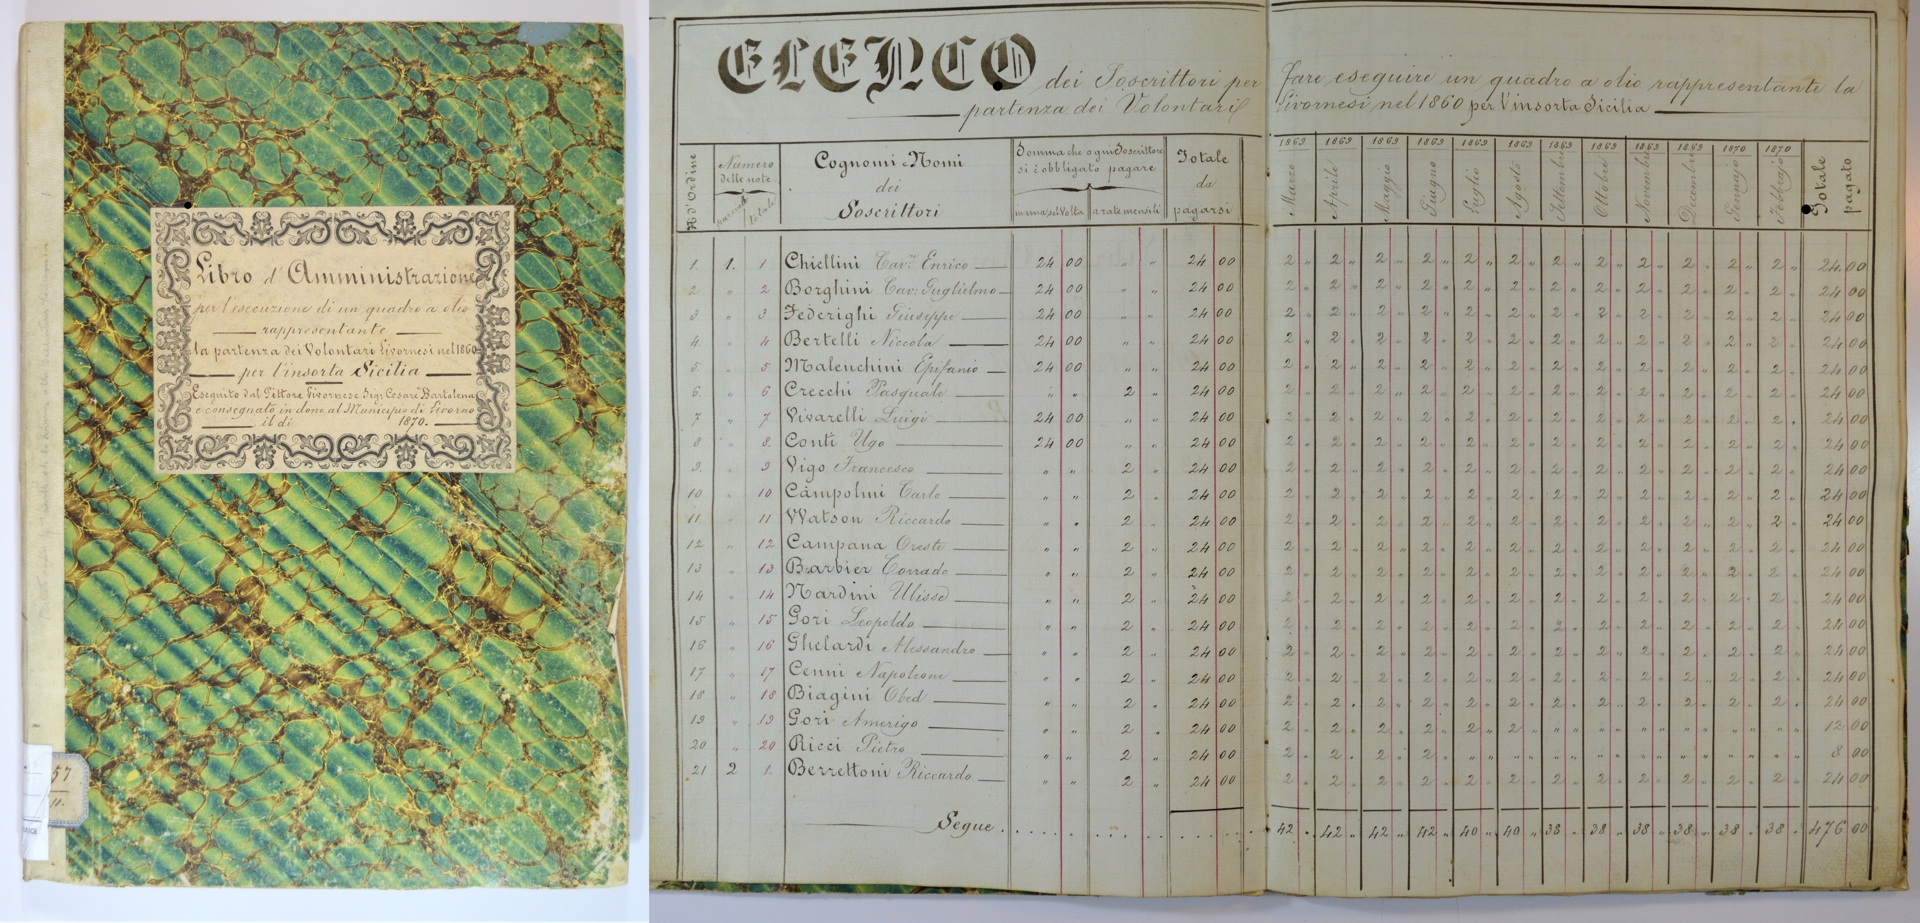 Libro d'Amministrazione
per l'esecuzione di un quadro a olio
rappresentante
la partenza dei Volontari Livornesi nel 1860
per l'insorta Sicilia
Eseguito dal Pittore Livornese Sig. Cesare Bartolena
e consegnato in dono al Municipio di Livorno
il di 1870.
57
11.
ELENCO dei Soscrittori per fare eseguire un quadro a olio rappresentante la
partenza dei Volontari Livornesi nel 1860 per l'insorta Sicilia
N. d'Ordine | Numero delle note parziale / totale | Cognomi e Nomi dei Soscrittori | Somma che ogni Soscrittore si è obbligato pagare in una sol volta | a rate mensili | Totale da pagarsi | 1869 Marzo | 1869 Aprile | 1869 Maggio | 1869 Giugno | 1869 Luglio | 1869 Agosto | 1869 Settembre | 1869 Ottobre | 1869 Novembre | 1869 Decembre | 1870 Gennajo | 1870 Febbrajo | Totale pagato
1. 1. 1 Chiellini Cav.r Enrico 24 00 " " 24 00 2 " 2 " 2 " 2 " 2 " 2 " 2 " 2 " 2 " 2 " 2 " 2 " 24.00
2 " 2 Borghini Cav: Guglielmo 24 00 " " 24 00 2 " 2 " 2 " 2 " 2 " 2 " 2 " 2 " 2 " 2 " 2 " 2 " 24 00
3 " 3 Federighi Giuseppe 24 00 " " 24 00 2 " 2 " 2 " 2 " 2 " 2 " 2 " 2 " 2 " 2 " 2 " 2 " 24 00
4. " 4 Bertelli Niccola 24 00 " " 24 00 2 " 2 " 2 " 2 " 2 " 2 " 2 " 2 " 2 " 2 " 2 " 2 " 24 00
5 " 5 Malenchini Epifanio 24 00 " " 24 00 2 " 2 " 2 " 2 " 2 " 2 " 2 " 2 " 2 " 2 " 2 " 2 " 24 00
6 " 6 Crecchi Pasquale " " 2 " 24 00 2 " 2 " 2 " 2 " 2 " 2 " 2 " 2 " 2 " 2 " 2 " 2 " 24 00
7 " 7 Vivarelli Luigi 24 00 " " 24 00 2 " 2 " 2 " 2 " 2 " 2 " 2 " 2 " 2 " 2 " 2 " 2 " 24 00
8 " 8. Conti Ugo 24 00 " " 24 00 2 " 2 " 2 " 2 " 2 " 2 " 2 " 2 " 2 " 2 " 2 " 2 " 24 00
9. " 9 Vigo Francesco " " 2 " 24 00 2 " 2 " 2 " 2 " 2 " 2 " 2 " 2 " 2 " 2 " 2 " 2 " 24 00
10 " 10 Campolmi Carlo " " 2 " 24 00 2 " 2 " 2 " 2 " 2 " 2 " 2 " 2 " 2 " 2 " 2 " 2 " 24 00
11 " 11 Watson Riccardo " " 2 " 24 00 2 " 2 " 2 " 2 " 2 " 2 " 2 " 2 " 2 " 2 " 2 " 2 " 24 00
12 " 12 Campana Oreste " " 2 " 24 00 2 " 2 " 2 " 2 " 2 " 2 " 2 " 2 " 2 " 2 " 2 " 2 " 24 00
13 " 13 Barbier Corrado " " 2 " 24 00 2 " 2 " 2 " 2 " 2 " 2 " 2 " 2 " 2 " 2 " 2 " 2 " 24 00
14 " 14 Nardini Ulisse " " 2 " 24 00 2 " 2 " 2 " 2 " 2 " 2 " 2 " 2 " 2 " 2 " 2 " 2 " 24 00
15 " 15 Gori Leopoldo " " 2 " 24 00 2 " 2 " 2 " 2 " 2 " 2 " 2 " 2 " 2 " 2 " 2 " 2 " 24 00
16 " 16 Ghelardi Alessandro " " 2 " 24 00 2 " 2 " 2 " 2 " 2 " 2 " 2 " 2 " 2 " 2 " 2 " 2 " 24 00
17 " 17 Cenni Napoleone " " 2 " 24 00 2 " 2 " 2 " 2 " 2 " 2 " 2 " 2 " 2 " 2 " 2 " 2 " 24 00
18 " 18 Biagini Obed " " 2 " 24 00 2 " 2 " 2 " 2 " 2 " 2 " 2 " 2 " 2 " 2 " 2 " 2 " 24 00
19 " 19 Gori Amerigo " " 2 " 24 00 2 " 2 " 2 " 2 " 2 " 2 " " " " " " " " " " " " " 12 00
20 " 20 Ricci Pietro " " 2 " 24 00 2 " 2 " 2 " 2 " " " " " " " " " " " " " " " " " 8 00
21 2 1. Berrettoni Riccardo " " 2 " 24 00 2 " 2 " 2 " 2 " 2 " 2 " 2 " 2 " 2 " 2 " 2 " 2 " 24 00
Segue 42 " 42 " 42 " 42 " 40 " 40 " 38 " 38 " 38 " 38 " 38 " 38 " 476 00